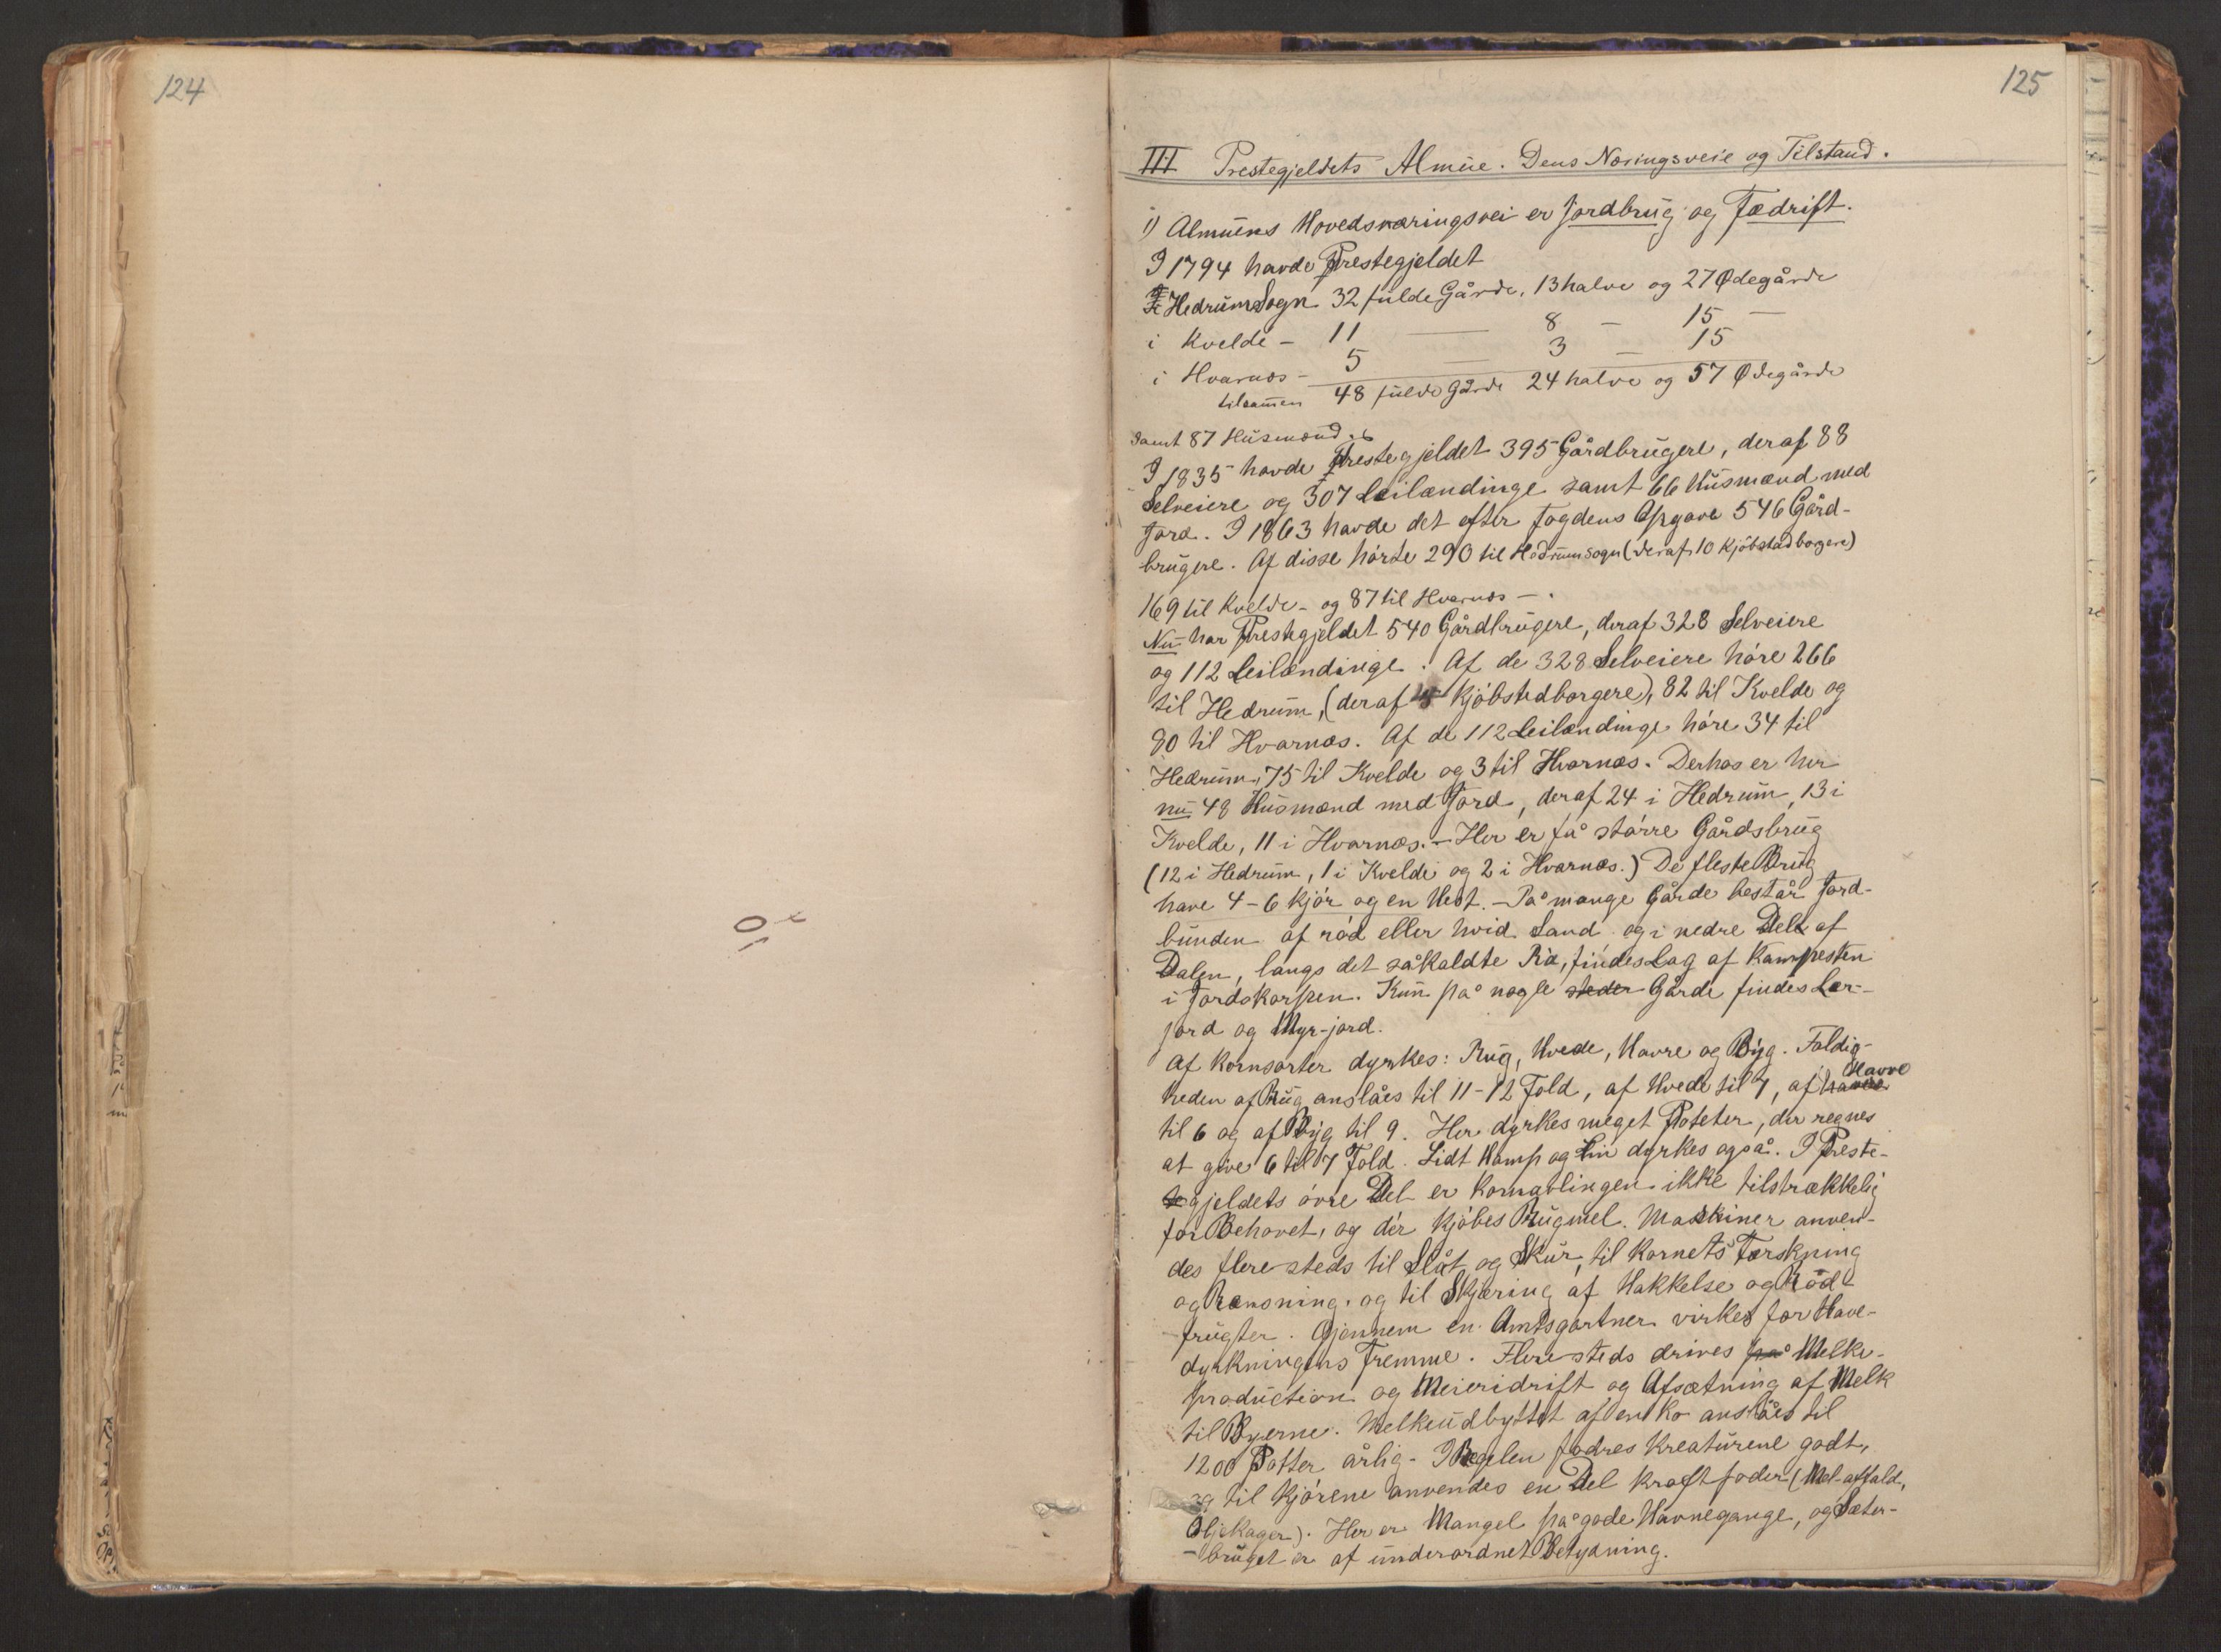 124
125
III Prestegjeldets Almue. Dens Næringsveie og Tilstand.
1) Almuens Hovedsnæringsvei er Jordbrug og Fædrift.
I 1794 havde Prestegjeldet
I Hedrum Sogn 32 fulde Gårde, 13 halve og 27 Ødegårde
i Kvelde – 11 — 8 – 15 —
i Hvarnæs – 5 — 3 – 15
tilsamen 48 fulde Gårde 24 halve og 57 Ødegårde
samt 87 Husmænd.
I 1835 havde Prestegjeldet 395 Gårdbrugere, deraf 88
Selveiere og 307 Leilændinge samt 66 Husmænd med
Jord. I 1863 havde det efter Fogdens Opgave 546 Gård-
brugere. Af disse hørte 290 til Hedrum Sogn (deraf 10 Kjøbstadborgere)
169 til Kvelde – og 87 til Hvarnæs –.
Nu har Prestegjeldet 540 Gårdbrugere, deraf 328 Selveiere
og 112 Leilændinge. Af de 328 Selveiere høre 266
til Hedrum, (deraf Kjøbstedborgere), 82 til Kvelde og
80 til Hvarnæs. Af de 112 Leilændinge høre 34 til
Hedrum, 75 til Kvelde og 3 til Hvarnæs. Derhos er her
nu 48 Husmænd med Jord, deraf 24 i Hedrum, 13 i
Kvelde, 11 i Hvarnæs. – Her er få større Gårdsbrug
(12 i Hedrum, 1 i Kvelde og 2 i Hvarnæs.) De fleste Brug
have 4–6 Kjør og en Hest. – På mange Gårde består Jord-
bunden af rød eller hvid Sand og i nedre Del af
Dalen, langs det såkaldte Ra, findes Lag af Kampesten
i Jordskorpen. Kun på nogle steder Gårde findes Ler-
jord og Myr-jord.
Af Kornsorter dyrkes: Rug, Hvede, Havre og Byg. Foldig-
heden af Rug anslåes til 11–12 Fold, af Hvede til 7, af havre Havre
til 6 og af Byg til 9. Her dyrkes meget Poteter, der regnes
at give 6 til 7 Fold. Lidt Hamp og Lin dyrkes også. I Preste-
gjeldets øvre Del er Kornavlingen ikke tilstrækkelig
for Behovet, og der kjøbes Rugmel. Maskiner anven-
des flere steds til Slåt og Skur, til Kornets Tærskning
og Rensning, og til Skjæring af Hakkelse og Rod-
frugter. Gjennem en Amtsgartner virkes for Have-
dyrkningens Fremme. Flere steds drives på Melke-
production og Meieridrift og Afsætning af Melk
til Byerne. Melkeudbyttet af en Ko anslåes til
1200 Potter årlig. I Regelen fodres Kreaturene godt,
og til Kjørene anvendes en Del Kraftfoder (Mel-affald,
Oljekager). Her er Mangel på gode Havnegange, og Sæter-
bruget er af underordnet Betydning.